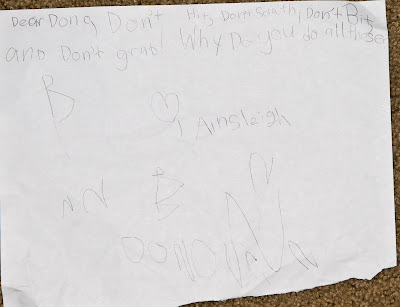 Dear Dong Don't Hit, Don't Scratch, Don't Bit
and Don't grab! Why Do you do all these
B
Ainsleigh
N N B N
DONOVAN